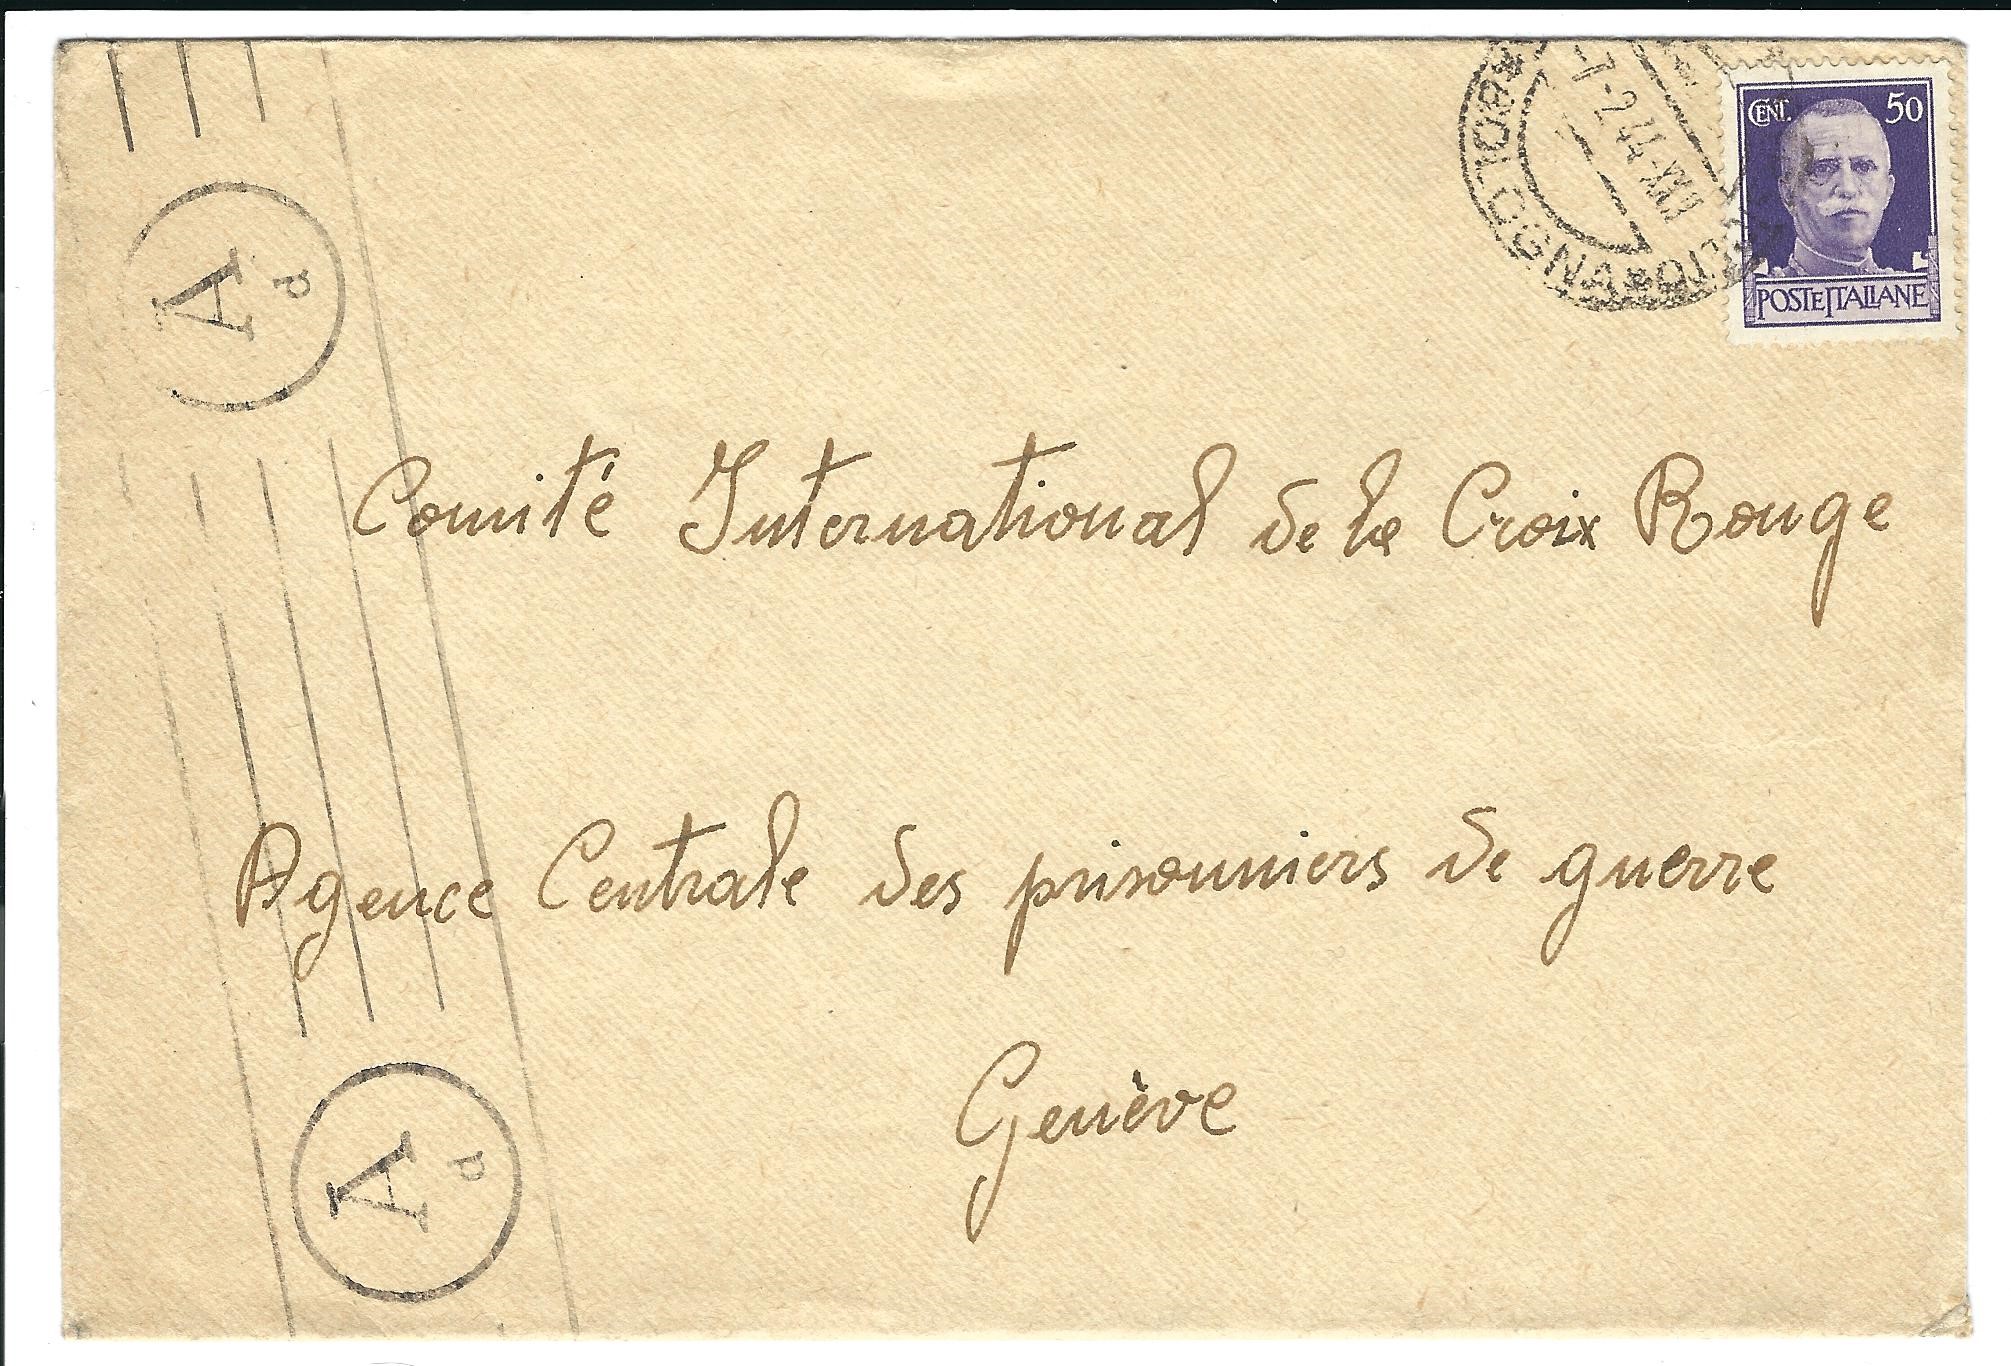 CENT. 50
POSTE ITALIANE
BOLOGNA
7-2 44-XXII
A d
Comité International de la Croix Rouge
Agence Centrale des prisonniers de guerre
Genève
A d